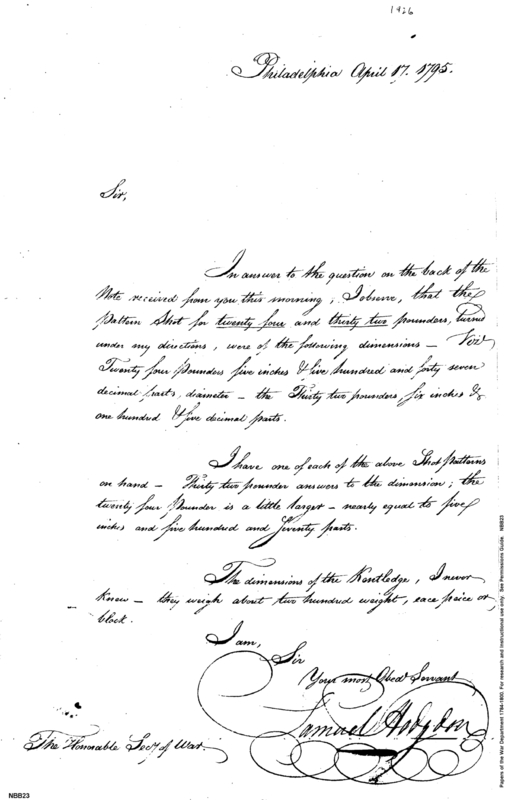 1926
Philadelphia April 17. 1795.
Sir,
In answer to the question on the back of the
Note received from you this morning; I observe, that the
Pattern Shot for twenty four and thirty two pounders, turned
under my directions, were of the following dimensions — Viz
Twenty four Pounders five inches & five hundred and forty seven
decimal parts, diameter — the Thirty two pounders, six inches &
one hundred & five decimal parts.
I have one of each of the above Shot Patterns
on hand — Thirty two pounder answers to the dimension; the
twenty four Pounder is a little larger — nearly equal to five
inches and five hundred and Seventy parts.
The dimensions of the Kentledge, I never
knew — they weigh about two hundred weight, eace peice or
block.
I am,
Sir
Your most Obed Servant
Samuel Hodgdon
The Honorable Secy of War.
NBB23
Papers of the War Department 1784-1800. For research and instructional use only. See Permissions Guide. NBB23